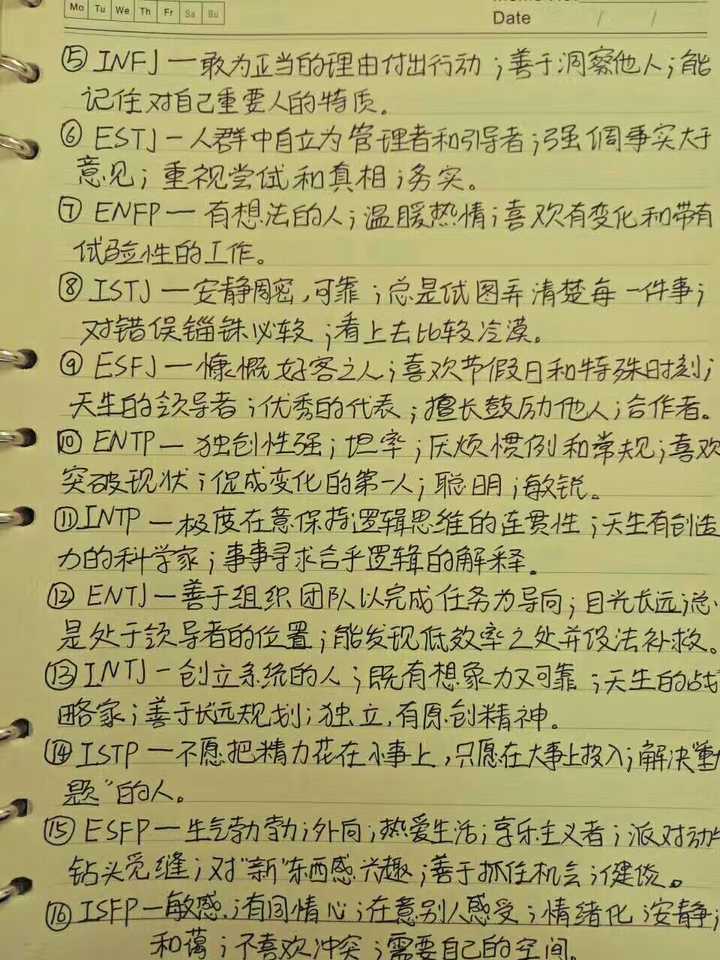 Mo Tu We Th Fr Sa Su
Date / /
⑤ INFJ — 敢为正当的理由付出行动；善于洞察他人；能
记住对自己重要人的特质。
⑥ ESTJ — 人群中自立为管理者和引导者；强调事实大于
意见；重视尝试和真相；务实。
⑦ ENFP — 有想法的人；温暖热情；喜欢有变化和带有
试验性的工作。
⑧ ISTJ — 安静周密，可靠；总是试图弄清楚每一件事；
对错误锱铢必较；看上去比较冷漠。
⑨ ESFJ — 慷慨好客之人；喜欢节假日和特殊时刻；
天生的领导者；优秀的代表；擅长鼓励他人；合作者。
⑩ ENTP — 独创性强；坦率；厌烦惯例和常规；喜欢
突破现状；促成变化的第一人；聪明；敏锐。
⑪ INTP — 极度在意保持逻辑思维的连贯性；天生有创造
力的科学家；事事寻求合乎逻辑的解释。
⑫ ENTJ — 善于组织团队以完成任务为导向；目光长远；总
是处于领导者的位置；能发现低效率之处并设法补救。
⑬ INTJ — 创立系统的人；既有想象力又可靠；天生的战
略家；善于长远规划；独立，有原创精神。
⑭ ISTP — 不愿把精力花在小事上，只愿在大事上投入；解决"重
题"的人。
⑮ ESFP — 生气勃勃；外向；热爱生活；享乐主义者；派对动物
钻头觅缝；对"新"东西感兴趣；善于抓住机会；健谈。
⑯ ISFP — 敏感；有同情心；在意别人感受；情绪化；安静；
和蔼；不喜欢冲突；需要自己的空间。